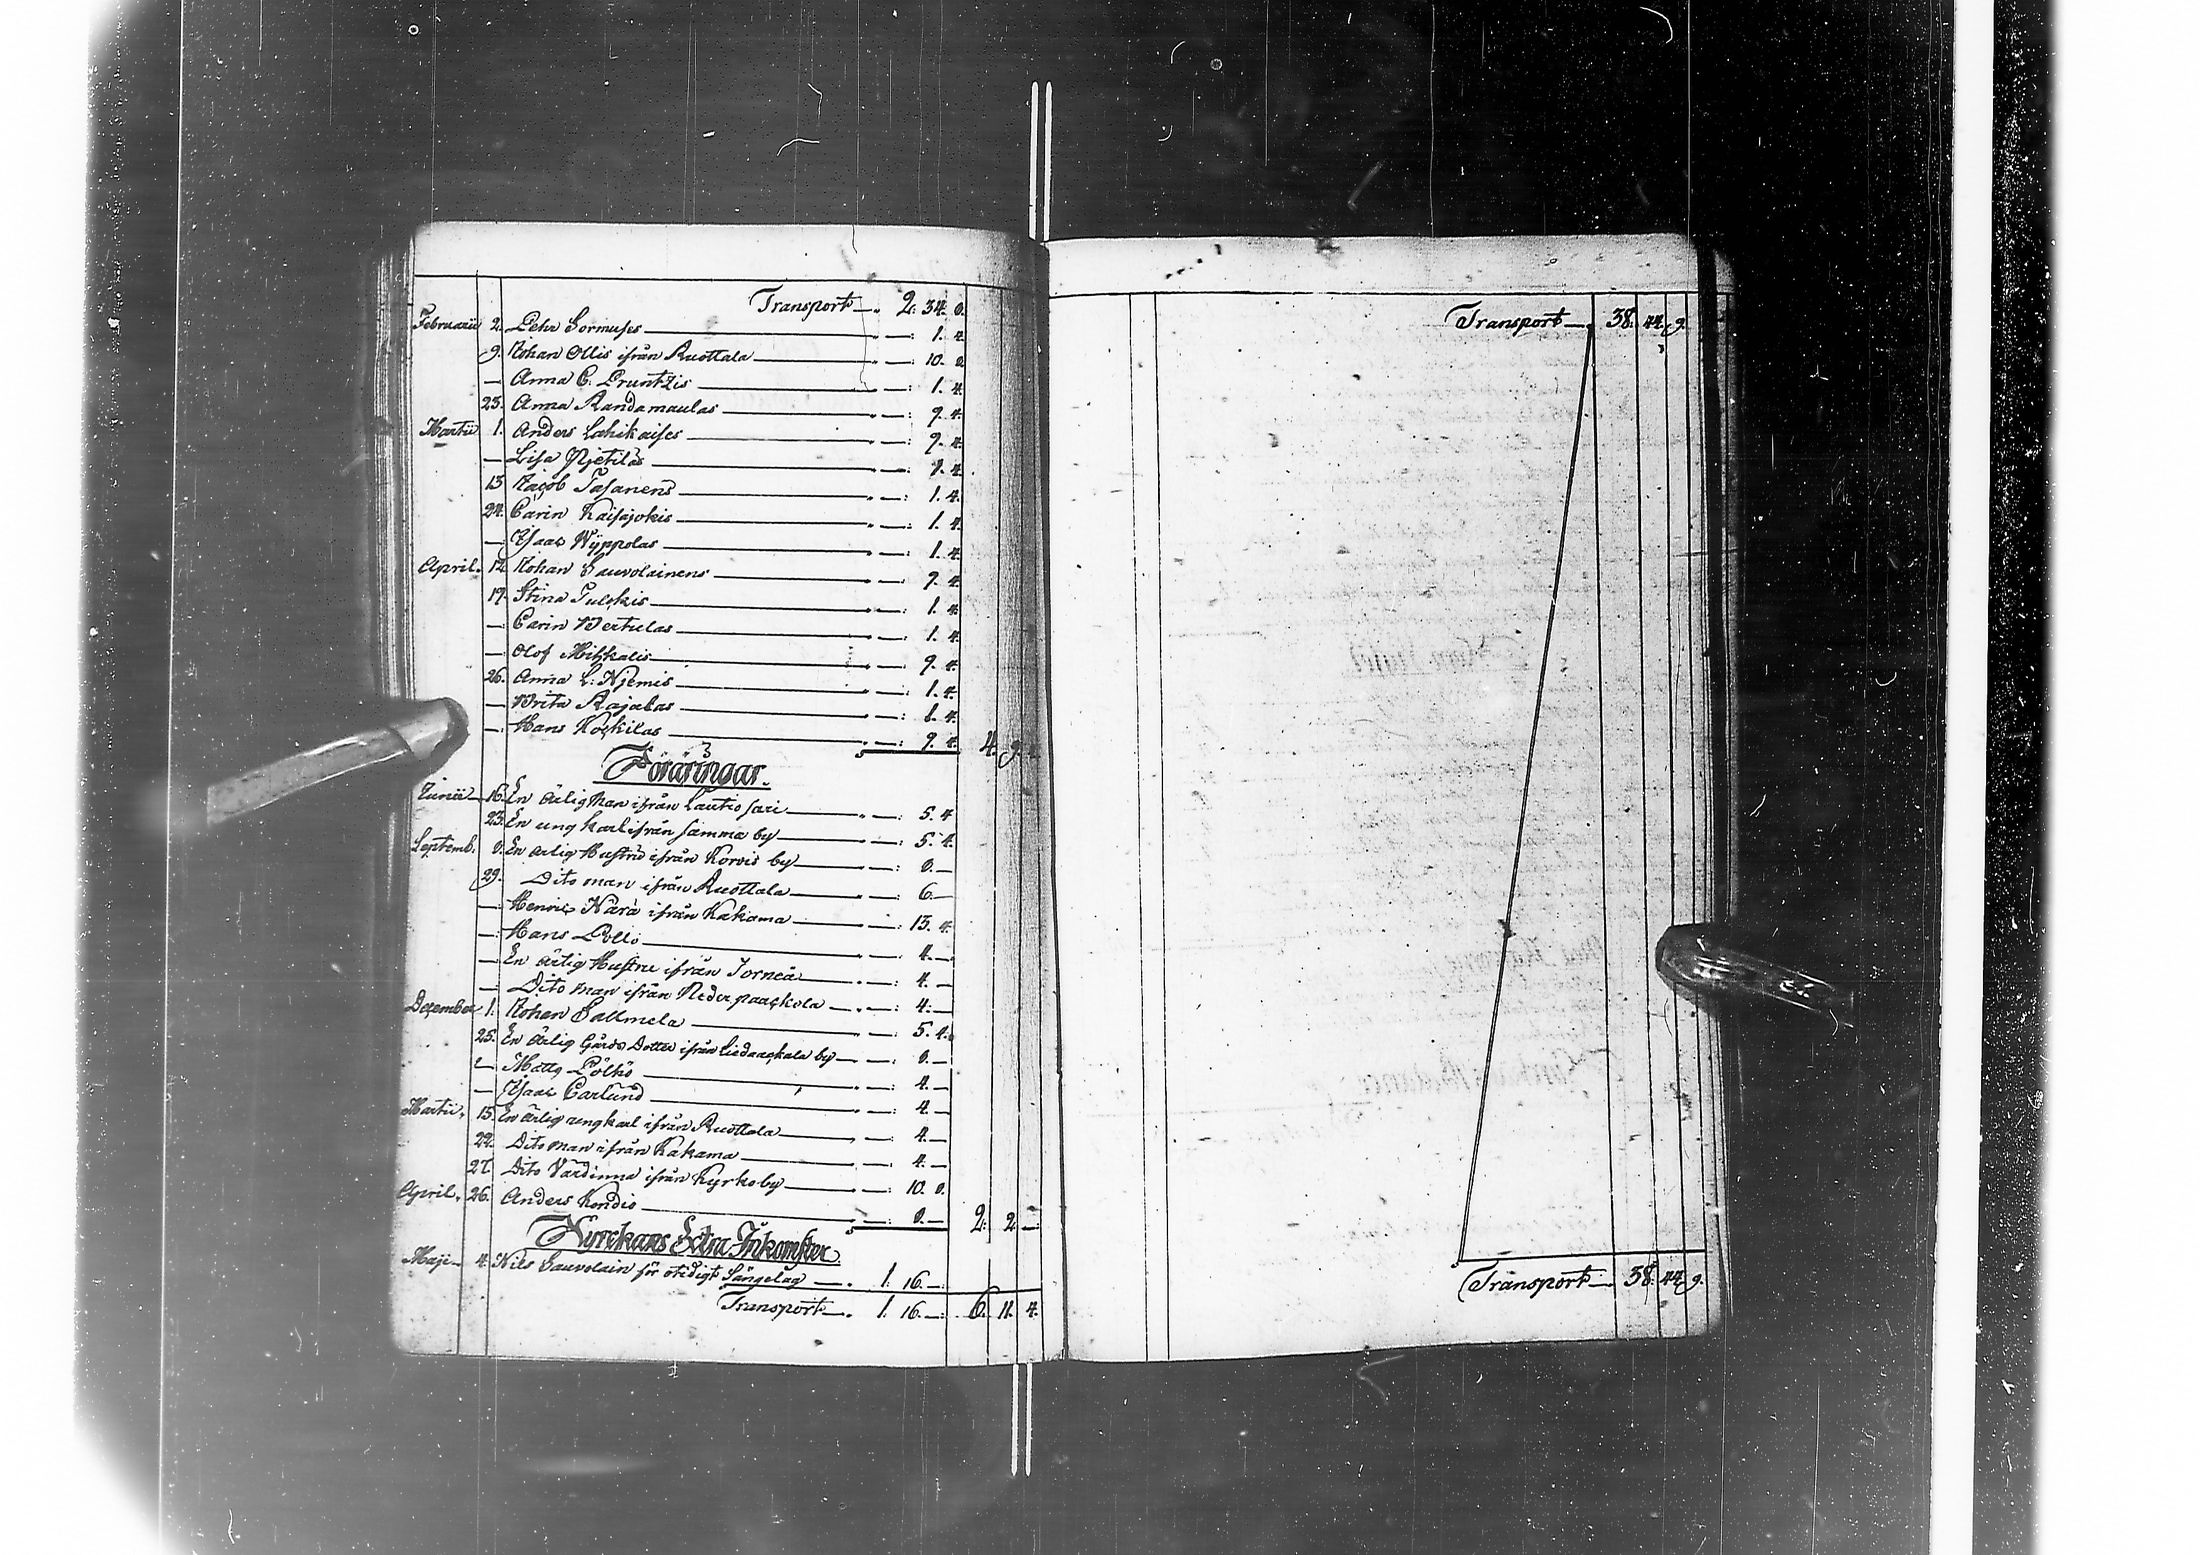 Transport —. 2: 34. 8.
Februarii 2. Pehr Sormuses — 1. 4.
9. Johan Ollis ifrån Ruottala — 10. 8
— Anna C: Pruntzis — 1. 4
23. Anna Randamaulas — 9. 4.
Martii 1. Anders Lahikaises — 9. 4.
— Lisa Njetilas — 1. 4.
13 Jacob Tasanens — 1. 4.
24. Carin Kaisajokis — 1. 4.
— Isaac Wyppolas — 1. 4.
April. 12. Johan Sauvolainens — 9. 4.
17. Stina Tulckis — 1. 4.
— Carin Wertulas — 1. 4.
— Olof Mitkalis — 9. 4.
26. Anna L: Njemis — 1. 4.
— Brita Rajalas — 1. 4.
— Hans Koskilas — 9. 4. 4. 9.
Föräringar.
Junii 16. En ärlig Man ifrån Lautiosari — 5. 4
23. En ung karl ifrån samma by — 5. 4.
Septemb. 8. En ärlig Hustru ifrån Korvis by — 8. —
29. Dito man ifrån Ruottala — 6. —
— Henric Närä ifrån Kakama — 13. 4.
— Hans Pello — 4. —
— En ärlig Hustru ifrån Torneå — 4. —
— Dito man ifrån Neder paackola — 4. —
December 1. Johan Sallmela — 5. 4.
25. En ärlig Gårds Dotter ifrån Liedaackala by — 8. —
— Matts Pölkö — 4. —
— Isaac Carlund — 4. —
Martii, 15. En ärlig ungkarl ifrån Ruottala — 4. —
22. Dito man ifrån Kakama — 4. —
27. Dito Värdinna ifrån Kyrkoby — 10. 8.
April. 26. Anders Kondio — 8. — 2: 2. —
Kyrckans Extra Inkomster.
Maji 4. Nils Sauvolain för otidigt Sängelag —. 1: 16. —
Transport —. 1: 16. —: 6. 11. 4.
Transport —. 38. 44. 9.
Transport — 38. 44. 9.